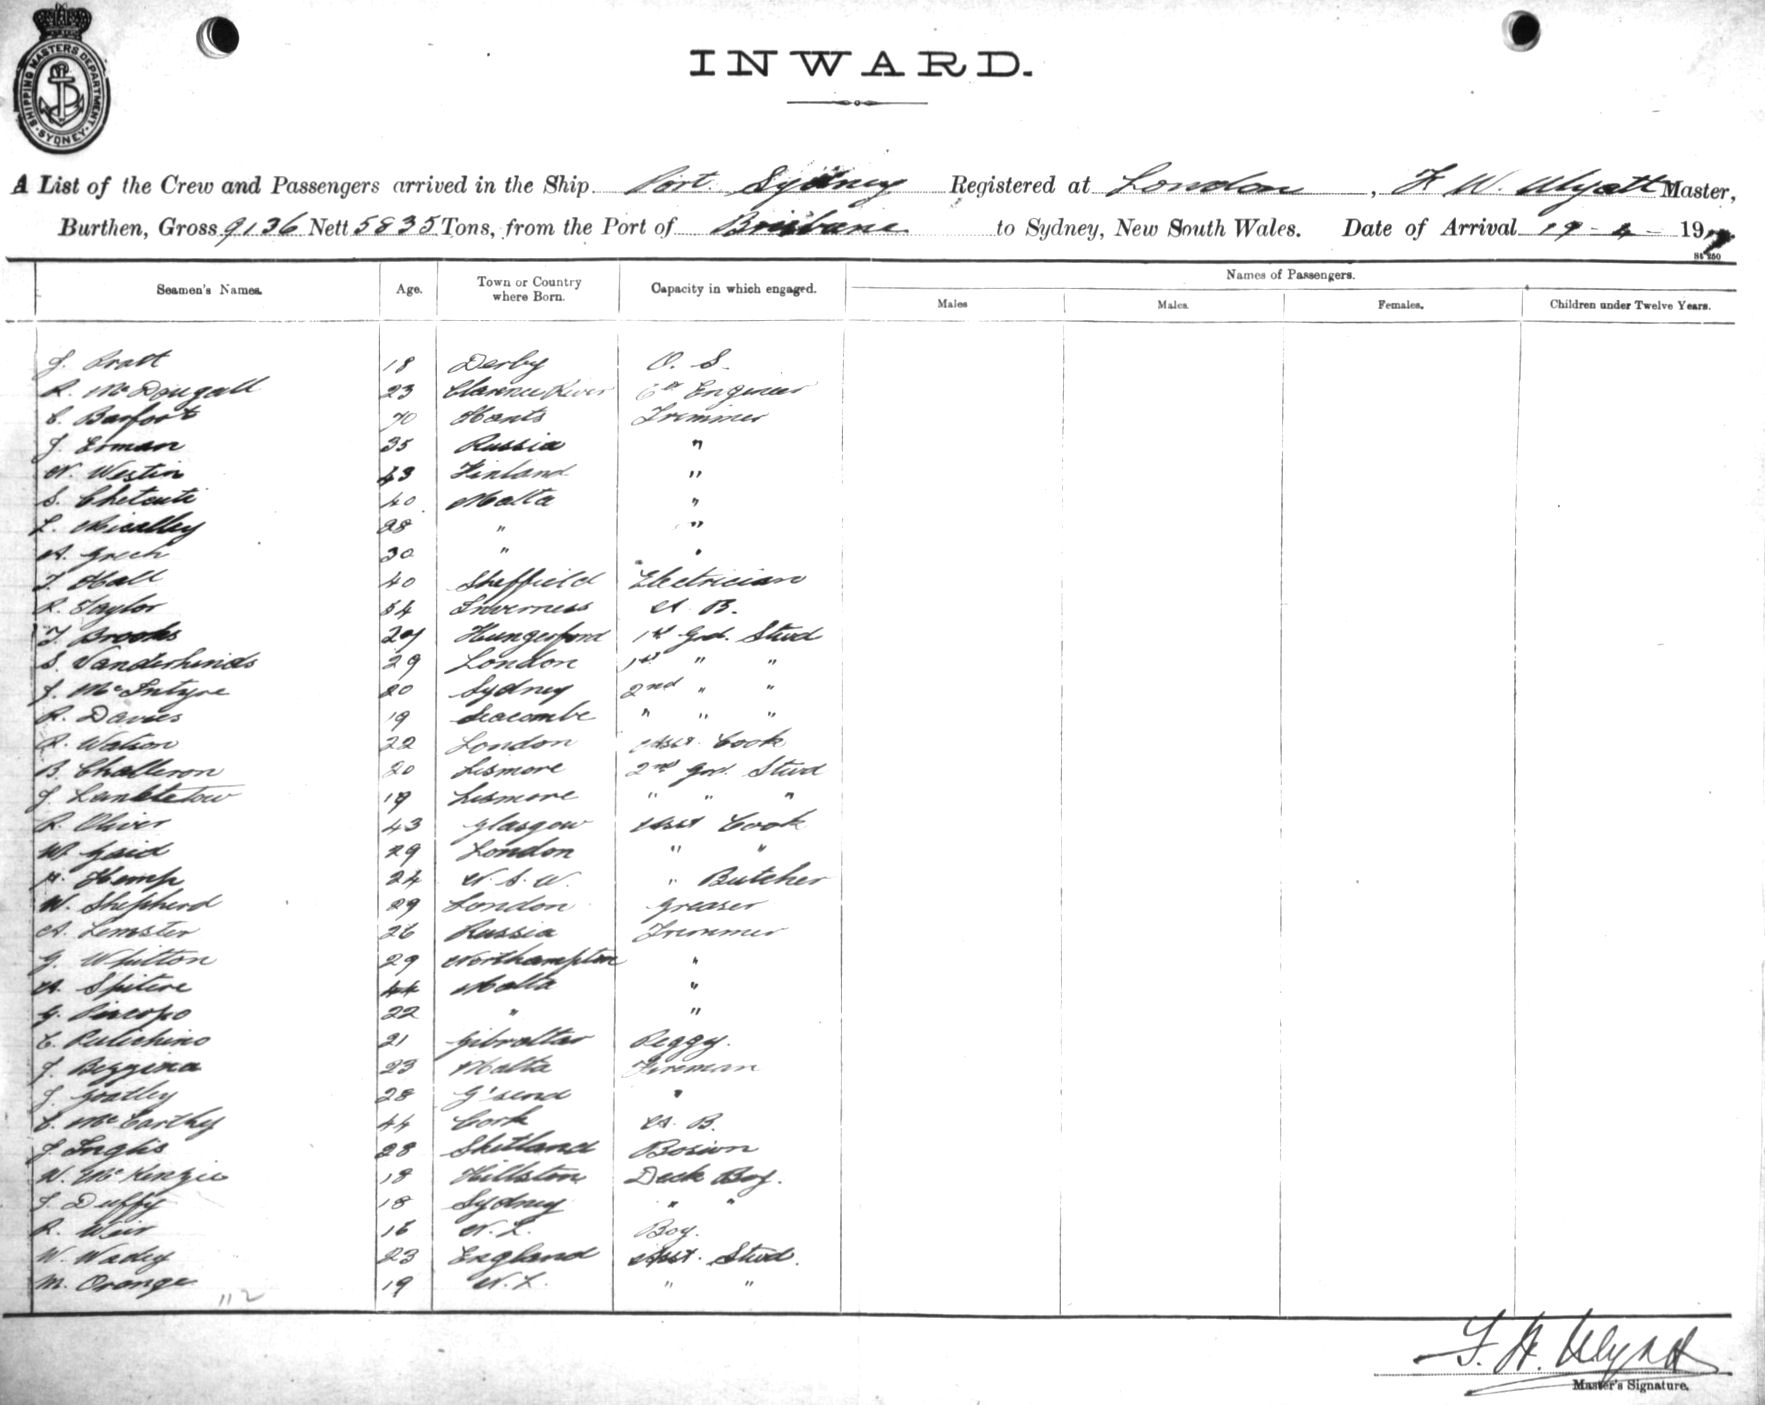 SHIPPING MASTERS DEPARTMENT · SYDNEY ·
INWARD.
A List of the Crew and Passengers arrived in the Ship Port Sydney Registered at London, F W. Wyatt Master,
Burthen, Gross 9136 Nett 5835 Tons, from the Port of Brisbane to Sydney, New South Wales. Date of Arrival 19-4-19
St 250
Seamen's Names. Age. Town or Country where Born. Capacity in which engaged. Names of Passengers.
Males Males. Females. Children under Twelve Years.
J. Pratt 18 Derby O. S.
R. McDougall 23 Clarence River 6th Engineer
C. Barfoot 40 Hants Trimmer
J. Erman 35 Russia "
N. Westin 43 Finland "
S. Chetcuti 40 Malta "
L. Micalley 28 " "
A. Grech 30 " "
T. Hall 40 Sheffield Electrician
R. Taylor 54 Inverness A. B.
T. Brooks 27 Hungerford 1st Grd. Stwd
S. Vanderhinds 29 London 1st " "
J. McIntyre 20 Sydney 2nd " "
R. Davies 19 Seacombe " " "
R. Watson 22 London Asst. Cook
B. Challeron 20 Lismore 2nd Grd. Stwd
J. 19 Lismore " " "
R. Oliver 43 Glasgow Asst Cook
W. Gaid 29 London " "
Kemp 24 N. S. W. " Butcher
W. Shepherd 29 London Greaser
A. Lemster 26 Russia Trimmer
G. Whitton 29 Northampton "
A. Spitere 44 Malta "
G. Piscopo 22 " "
C. Pulichino 21 Gibraltar Peggy.
J. Bezzina 23 Malta Fireman
J. Goatley 28 G'send "
C. McCarthy 44 Cork A. B.
J. Inglis 28 Shetland Bosun
W. McKenzie 18 Hillston Deck Boy.
J. Duffy 18 Sydney " "
R. Weir 16 N. Z. Boy.
W. Wadey 23 England Asst. Stwd.
M. Orange 19 N. Z. " "
112
F. W. Wyatt
Master's Signature.